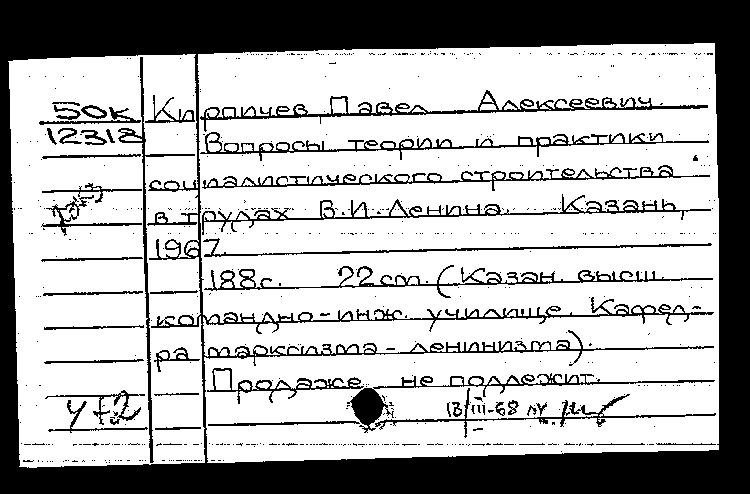 50к Кирпичев, Павел Алексеевич.
12312 Вопросы теории и практики
социалистического строительства
в трудах В.И.Ленина. Казань,
1967.
188с. 22см. (Казан. высш.
командно-инж. училище. Кафед-
ра марксизма-ленинизма).
Продаже не подлежит.
У+2 13/III-68